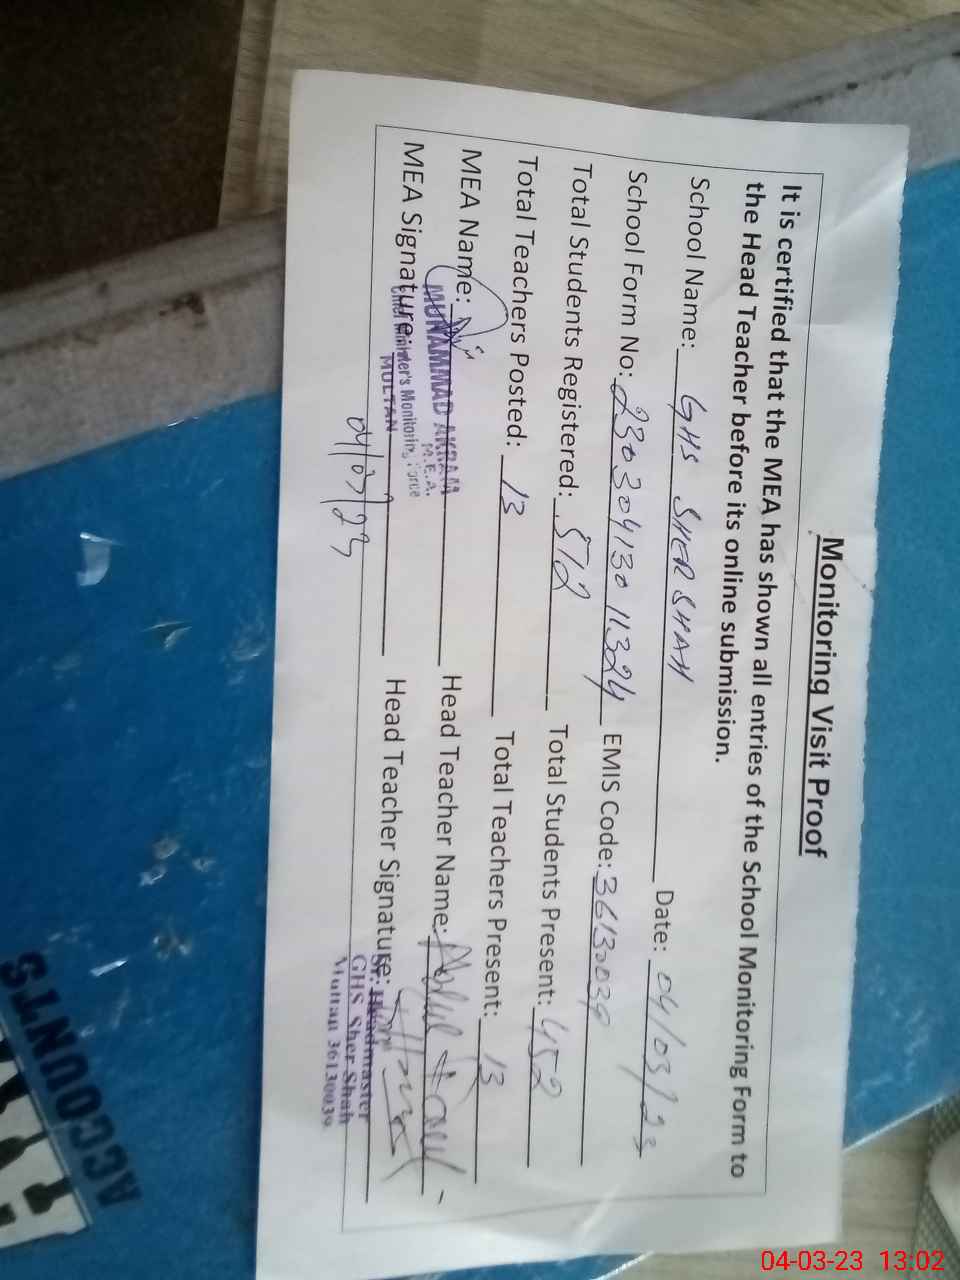 Monitoring Visit Proof
It is certified that the MEA has shown all entries of the School Monitoring Form to
the Head Teacher before its online submission.
School Name: GHS SHER SHAH Date: 04/03/23
School Form No: 230304130 11324 EMIS Code: 36130039
Total Students Registered: 512 Total Students Present: 452
Total Teachers Posted: 13 Total Teachers Present: 13
MEA Name: Head Teacher Name: Abdul
MUHAMMAD AKRAM
M.E.A.
MEA Signature: Head Teacher Signature:
Chief Minister's Monitoring Force
MULTAN
Sr. Headmaster
GHS Sher Shah
Multan 36130039
04/03/23
ACCOUNTS
04-03-23 13:02